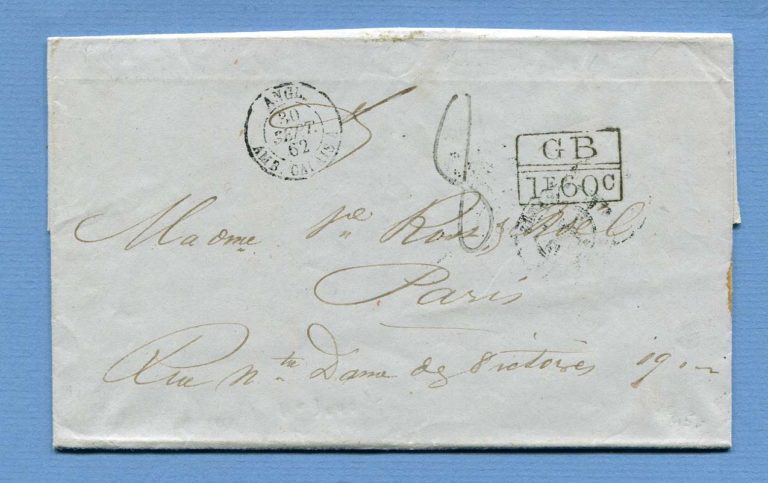 ANGL.
30
SEPT.
62
AMB. CALAIS
8
GB
1F60C
Madme
Paris
Rue Nte Dame des Victoires 19